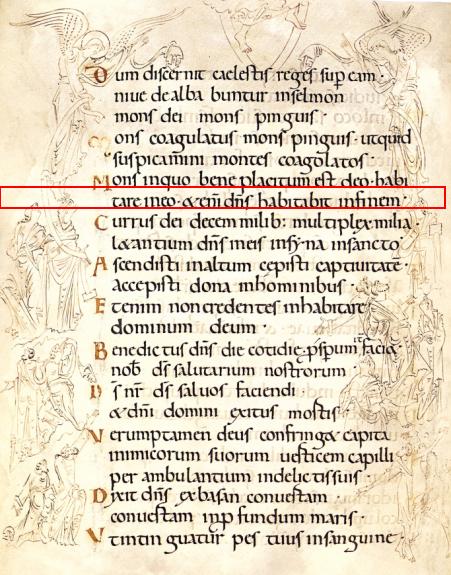 Dum discernit caelestis reges sup eam·
niue dealbabuntur inselmon
mons dei mons pinguis·
Mons coagulatus mons pinguis· utquid
suspicamini montes coagolatos·
Mons inquo bene placitum est deo· habi
tare ineo· &enī dñs habitabit infinem·
Currus dei decem milib: multiplex· milia·
l&antium dñs ineis insy·na insancto
Ascendisti inaltum cepisti captiuitatē·
accepisti dona inhominibus·
Etenim noncredentes inhabitare
dominum deum·
Benedictus dñs die cotidie· pspum fac& it
nob ds salutarium nostrorum·
Ds nr ds saluos faciendi
&dñi domini exitus mortis·
Verumptamen deus confring& capita
inimicorum suorum uerticem capilli
per ambulantium indelictissuis·
Dixit dñs exbasan conuertam
conuertam inpfundum maris·
Vt intinguatur pes tuus insanguine·